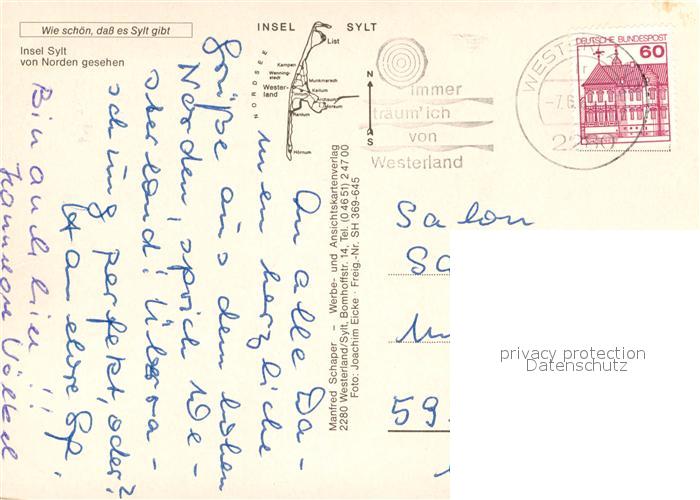 Wie schön, daß es Sylt gibt
Insel Sylt
von Norden gesehen
INSEL SYLT
List
NORDSEE
Kampen
Wenning-
stedt
Munkmarsch
Wester-
land
Keitum
Morsum
Rantum
Hörnum
N
S
Immer
träum' ich
von
Westerland
WESTERLAND
-7.6.
2280
DEUTSCHE BUNDESPOST
60
Manfred Schaper – Werbe- und Ansichtskartenverlag
2280 Westerland/Sylt, Bomhoffstr. 14, Tel. (0 46 51) 2 47 00
Foto: Joachim Eicke · Freig.-Nr. SH 369-645
An alle Da-
men herzliche
Grüße aus dem hohen
Norden, sprich We-
sterland! Überra-
schung perfekt, oder?
Bin auch hier!!
Hannelore
Salon
59
privacy protection
Datenschutz